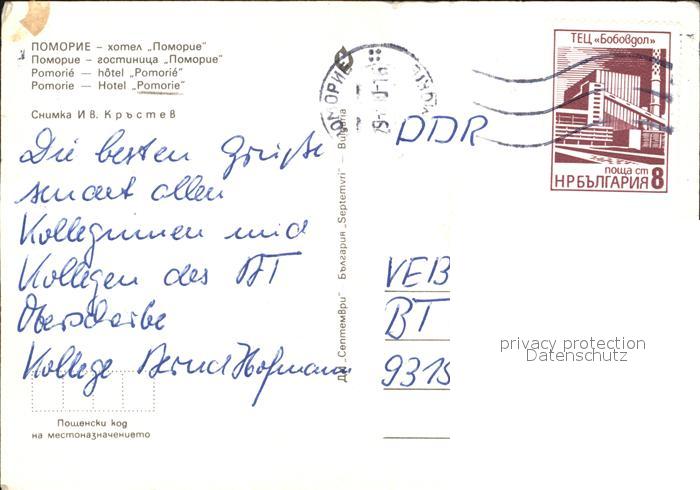 ПОМОРИЕ – хотел „Поморие“
Поморие – гостиница „Поморие“
Pomorié — hôtel „Pomorié“
Pomorie — Hotel „Pomorie“
Снимка Ив. Кръстев
Die besten Grüße
sendet allen
Kolleginnen und
Kollegen des BT
Kollege Bernd Hofmann
Пощенски код
на местоназначението
ДП „Септември“ — България „Septemvri“ — Bulgaria
ПОМОРИЕ
DDR
VEB
BT
9315
ТЕЦ «Бобовдол»
поща ст
НРБЪЛГАРИЯ 8
privacy protection
Datenschutz